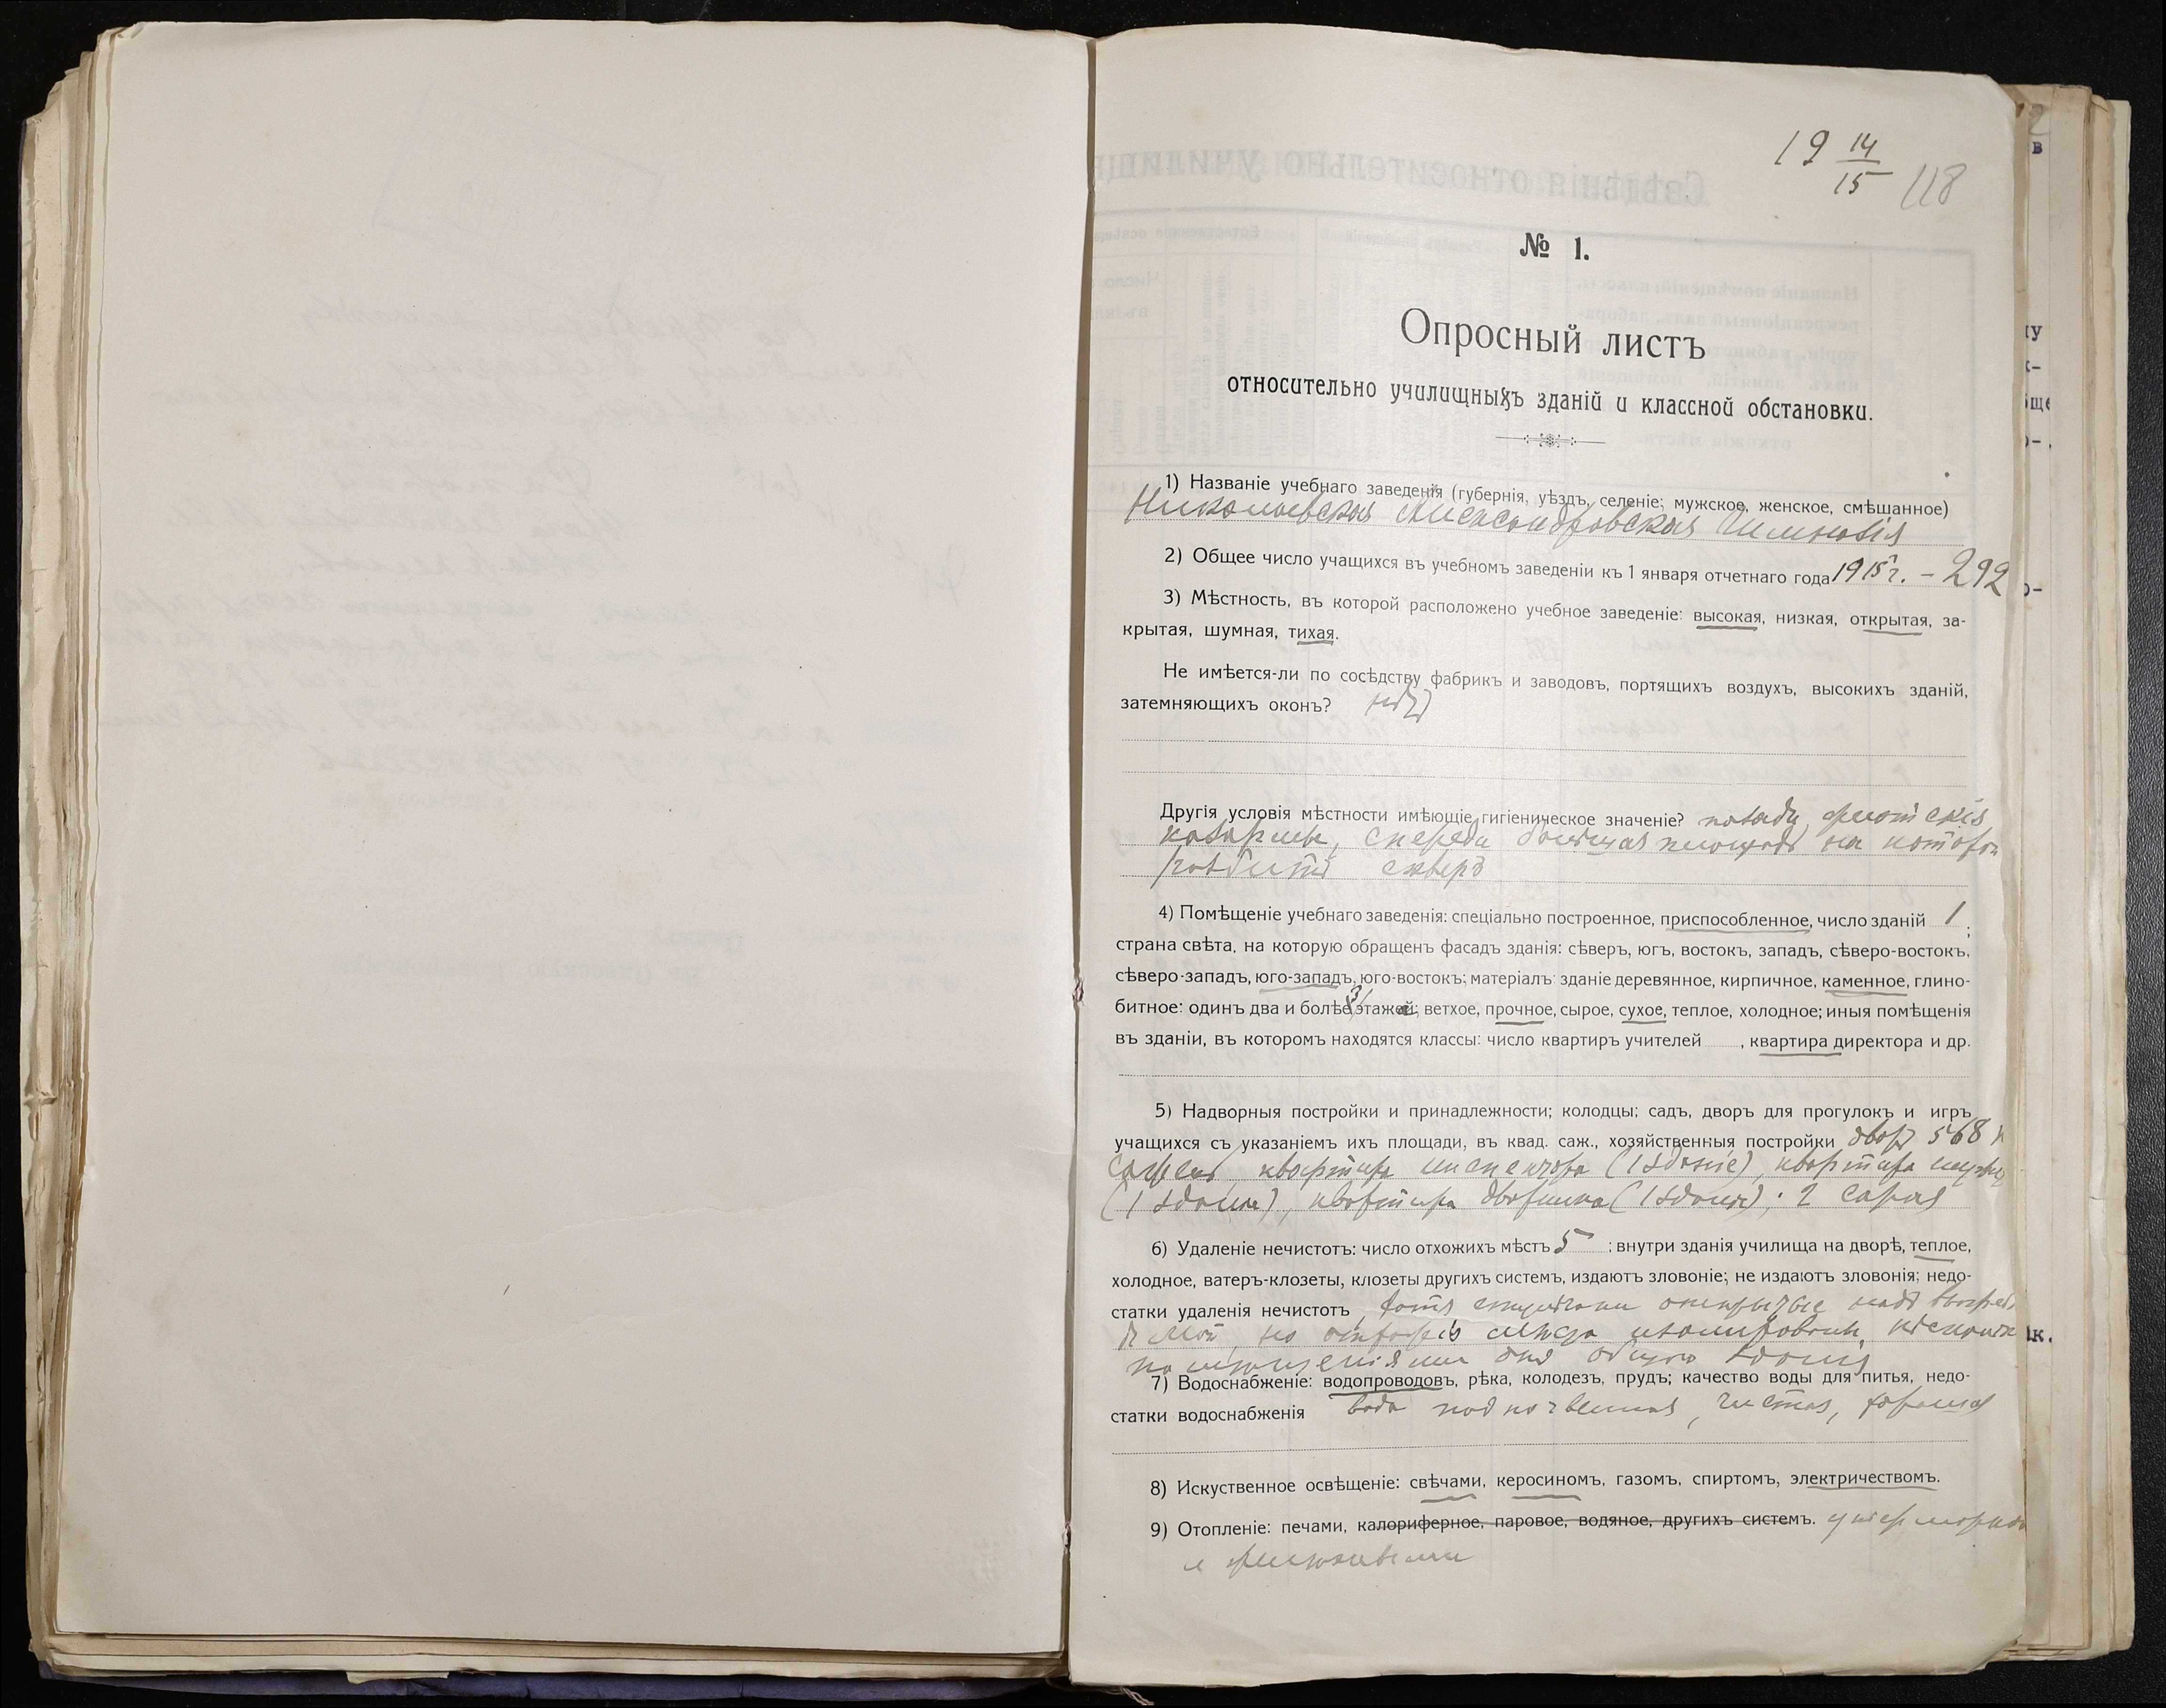 19 14/15 118
№ 1.
Опросный листъ
относительно училищныхъ зданій и классной обстановки.
1) Названіе учебнаго заведенія (губернія, уѣздъ, селеніе; мужское, женское, смѣшанное)
Николаевская Александровская Гимназія
2) Общее число учащихся въ учебномъ заведеніи къ 1 января отчетнаго года 1915 г. – 292
3) Мѣстность, въ которой расположено учебное заведеніе: высокая, низкая, открытая, за-
крытая, шумная, тихая.
Не имѣется-ли по сосѣдству фабрикъ и заводовъ, портящихъ воздухъ, высокихъ зданій,
затемняющихъ оконъ? нѣтъ
Другія условія мѣстности имѣющіе гигіеническое значеніе? позади флотскія
казармы, спереди большая площадь на которой
разбитъ скверъ
4) Помѣщеніе учебнаго заведенія: спеціально построенное, приспособленное, число зданій 1 ;
страна свѣта, на которую обращенъ фасадъ зданія: сѣверъ, югъ, востокъ, западъ, сѣверо-востокъ,
сѣверо-западъ, юго-западъ, юго-востокъ; матеріалъ: зданіе деревянное, кирпичное, каменное, глино-
битное: одинъ два и болѣе 3 этажей; ветхое, прочное, сырое, сухое, теплое, холодное; иныя помѣщенія
въ зданіи, въ которомъ находятся классы: число квартиръ учителей , квартира директора и др.
5) Надворныя постройки и принадлежности; колодцы; садъ, дворъ для прогулокъ и игръ
учащихся съ указаніемъ ихъ площади, въ квад. саж., хозяйственныя постройки дворъ 568 к
сажень, квартира инспектора (1 зданіе), квартира
(1 зданіе), квартира дворника (1 зданіе); 2 сарая
6) Удаленіе нечистотъ: число отхожихъ мѣстъ 5 ; внутри зданія училища на дворѣ, теплое,
холодное, ватеръ-клозеты, клозеты другихъ системъ, издаютъ зловоніе; не издаютъ зловонія; недо-
статки удаленія нечистотъ, хотя открытые надъ
но мѣста изолированы
помѣщеніями отъ общаго зданія
7) Водоснабженіе: водопроводовъ, рѣка, колодезъ, прудъ; качество воды для питья, недо-
статки водоснабженія вода подпочвенная, чистая, хорошая
8) Искуственное освѣщеніе: свѣчами, керосиномъ, газомъ, спиртомъ, электричествомъ.
9) Отопленіе: печами, калориферное, паровое, водяное, другихъ системъ.
и